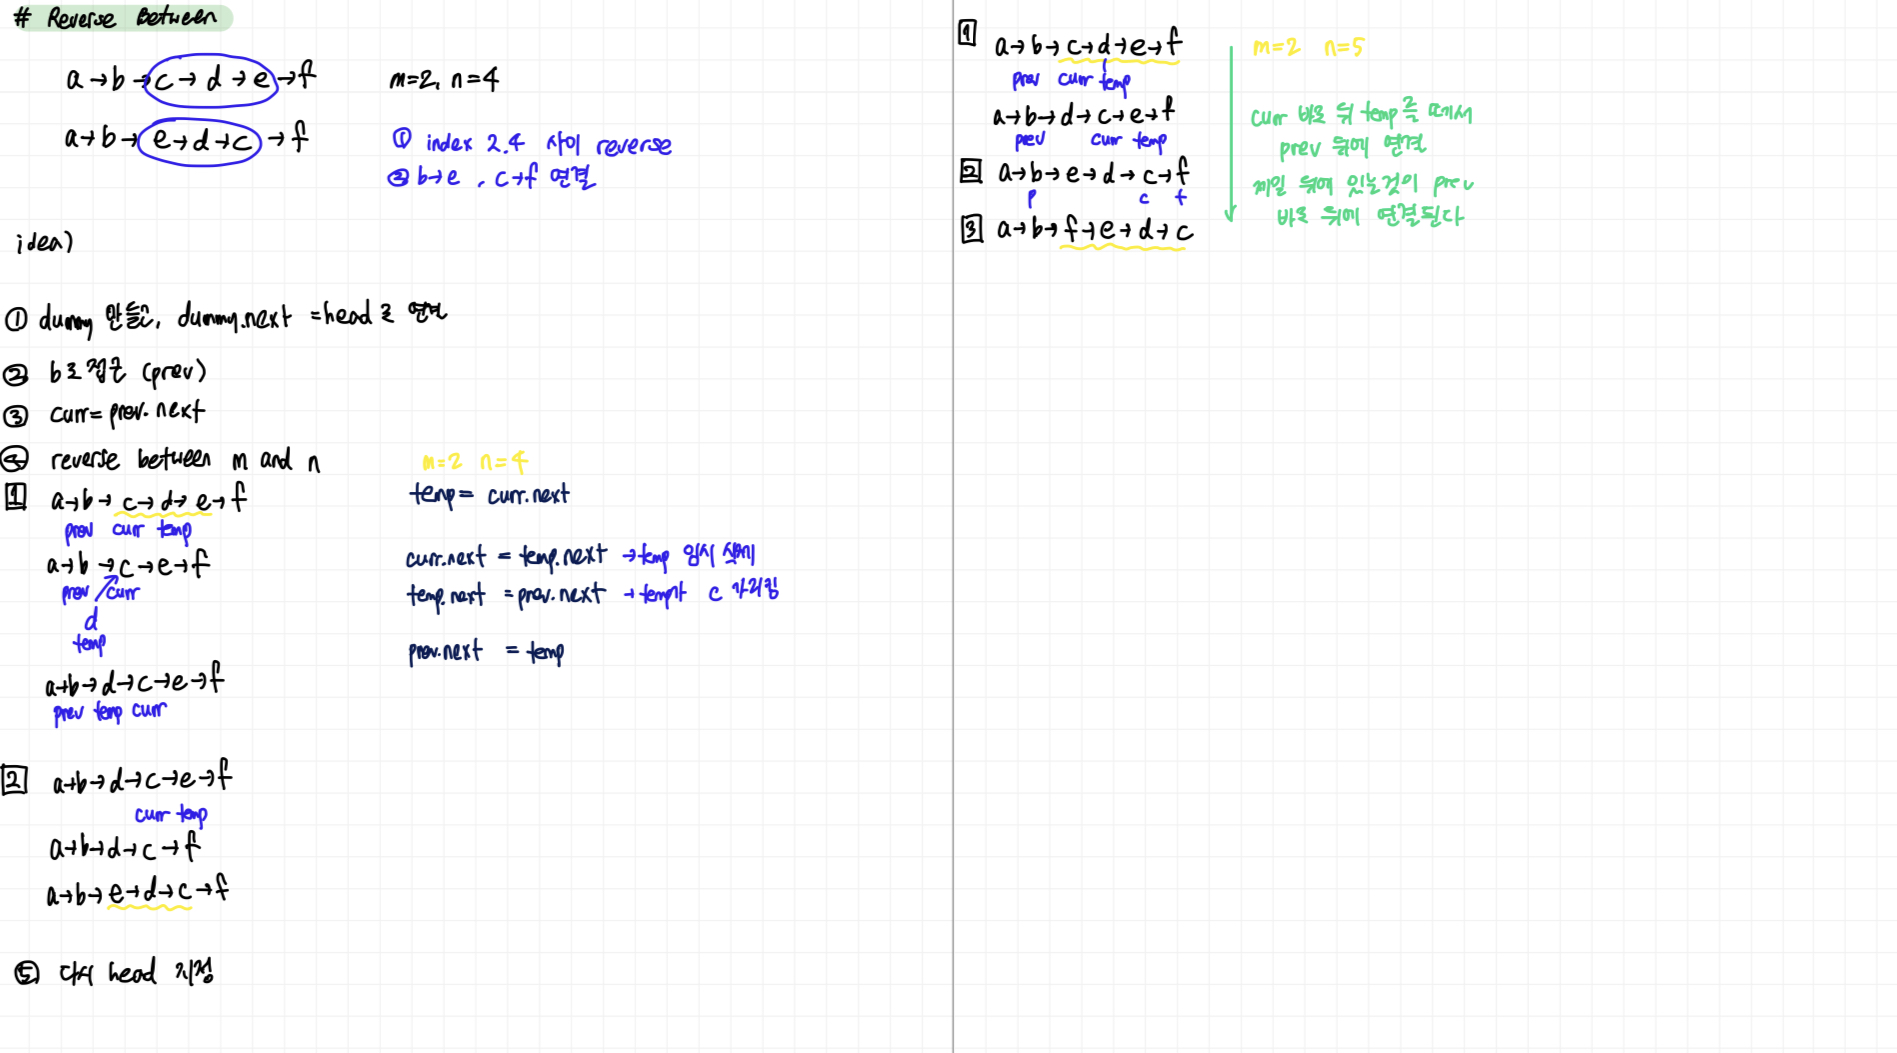 # Reverse Between
a→b→c→d→e→f
m=2, n=4
a→b→e→d→c→f
① index 2.4 사이 reverse
② b→e , c→f 연결
idea)
① dummy 만들고, dummy.next = head 로 연결
② b로 접근 (prev)
③ curr= prev.next
④ reverse between m and n
m=2 n=4
1 a→b→c→d→e→f
prev curr temp
temp= curr.next
a→b→c→e→f
prev curr
d
temp
curr.next = temp.next →temp 임시 삭제
temp.next = prev.next →temp가 c 가리킴
prev.next = temp
a→b→d→c→e→f
prev temp curr
2 a→b→d→c→e→f
curr temp
a→b→d→c→f
a→b→e→d→c→f
⑤ 다시 head 지정
1 a→b→c→d→e→f
prev curr temp
a→b→d→c→e→f
prev curr temp
2 a→b→e→d→c→f
p c t
3 a→b→f→e→d→c
m=2 n=5
curr 바로 뒤 temp를 떼서
prev 뒤에 연결
제일 뒤에 있는것이 prev
바로 뒤에 연결된다